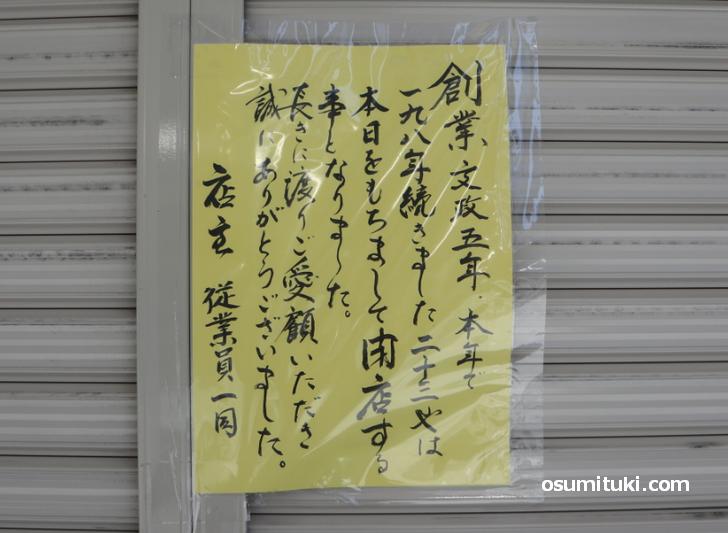 創業文政五年、本年で
一九八年続きました二十三やは
本日をもちまして閉店する
事となりました。
長きに渡りご愛顧いただき
誠にありがとうございました。
店主 従業員一同
osumituki.com